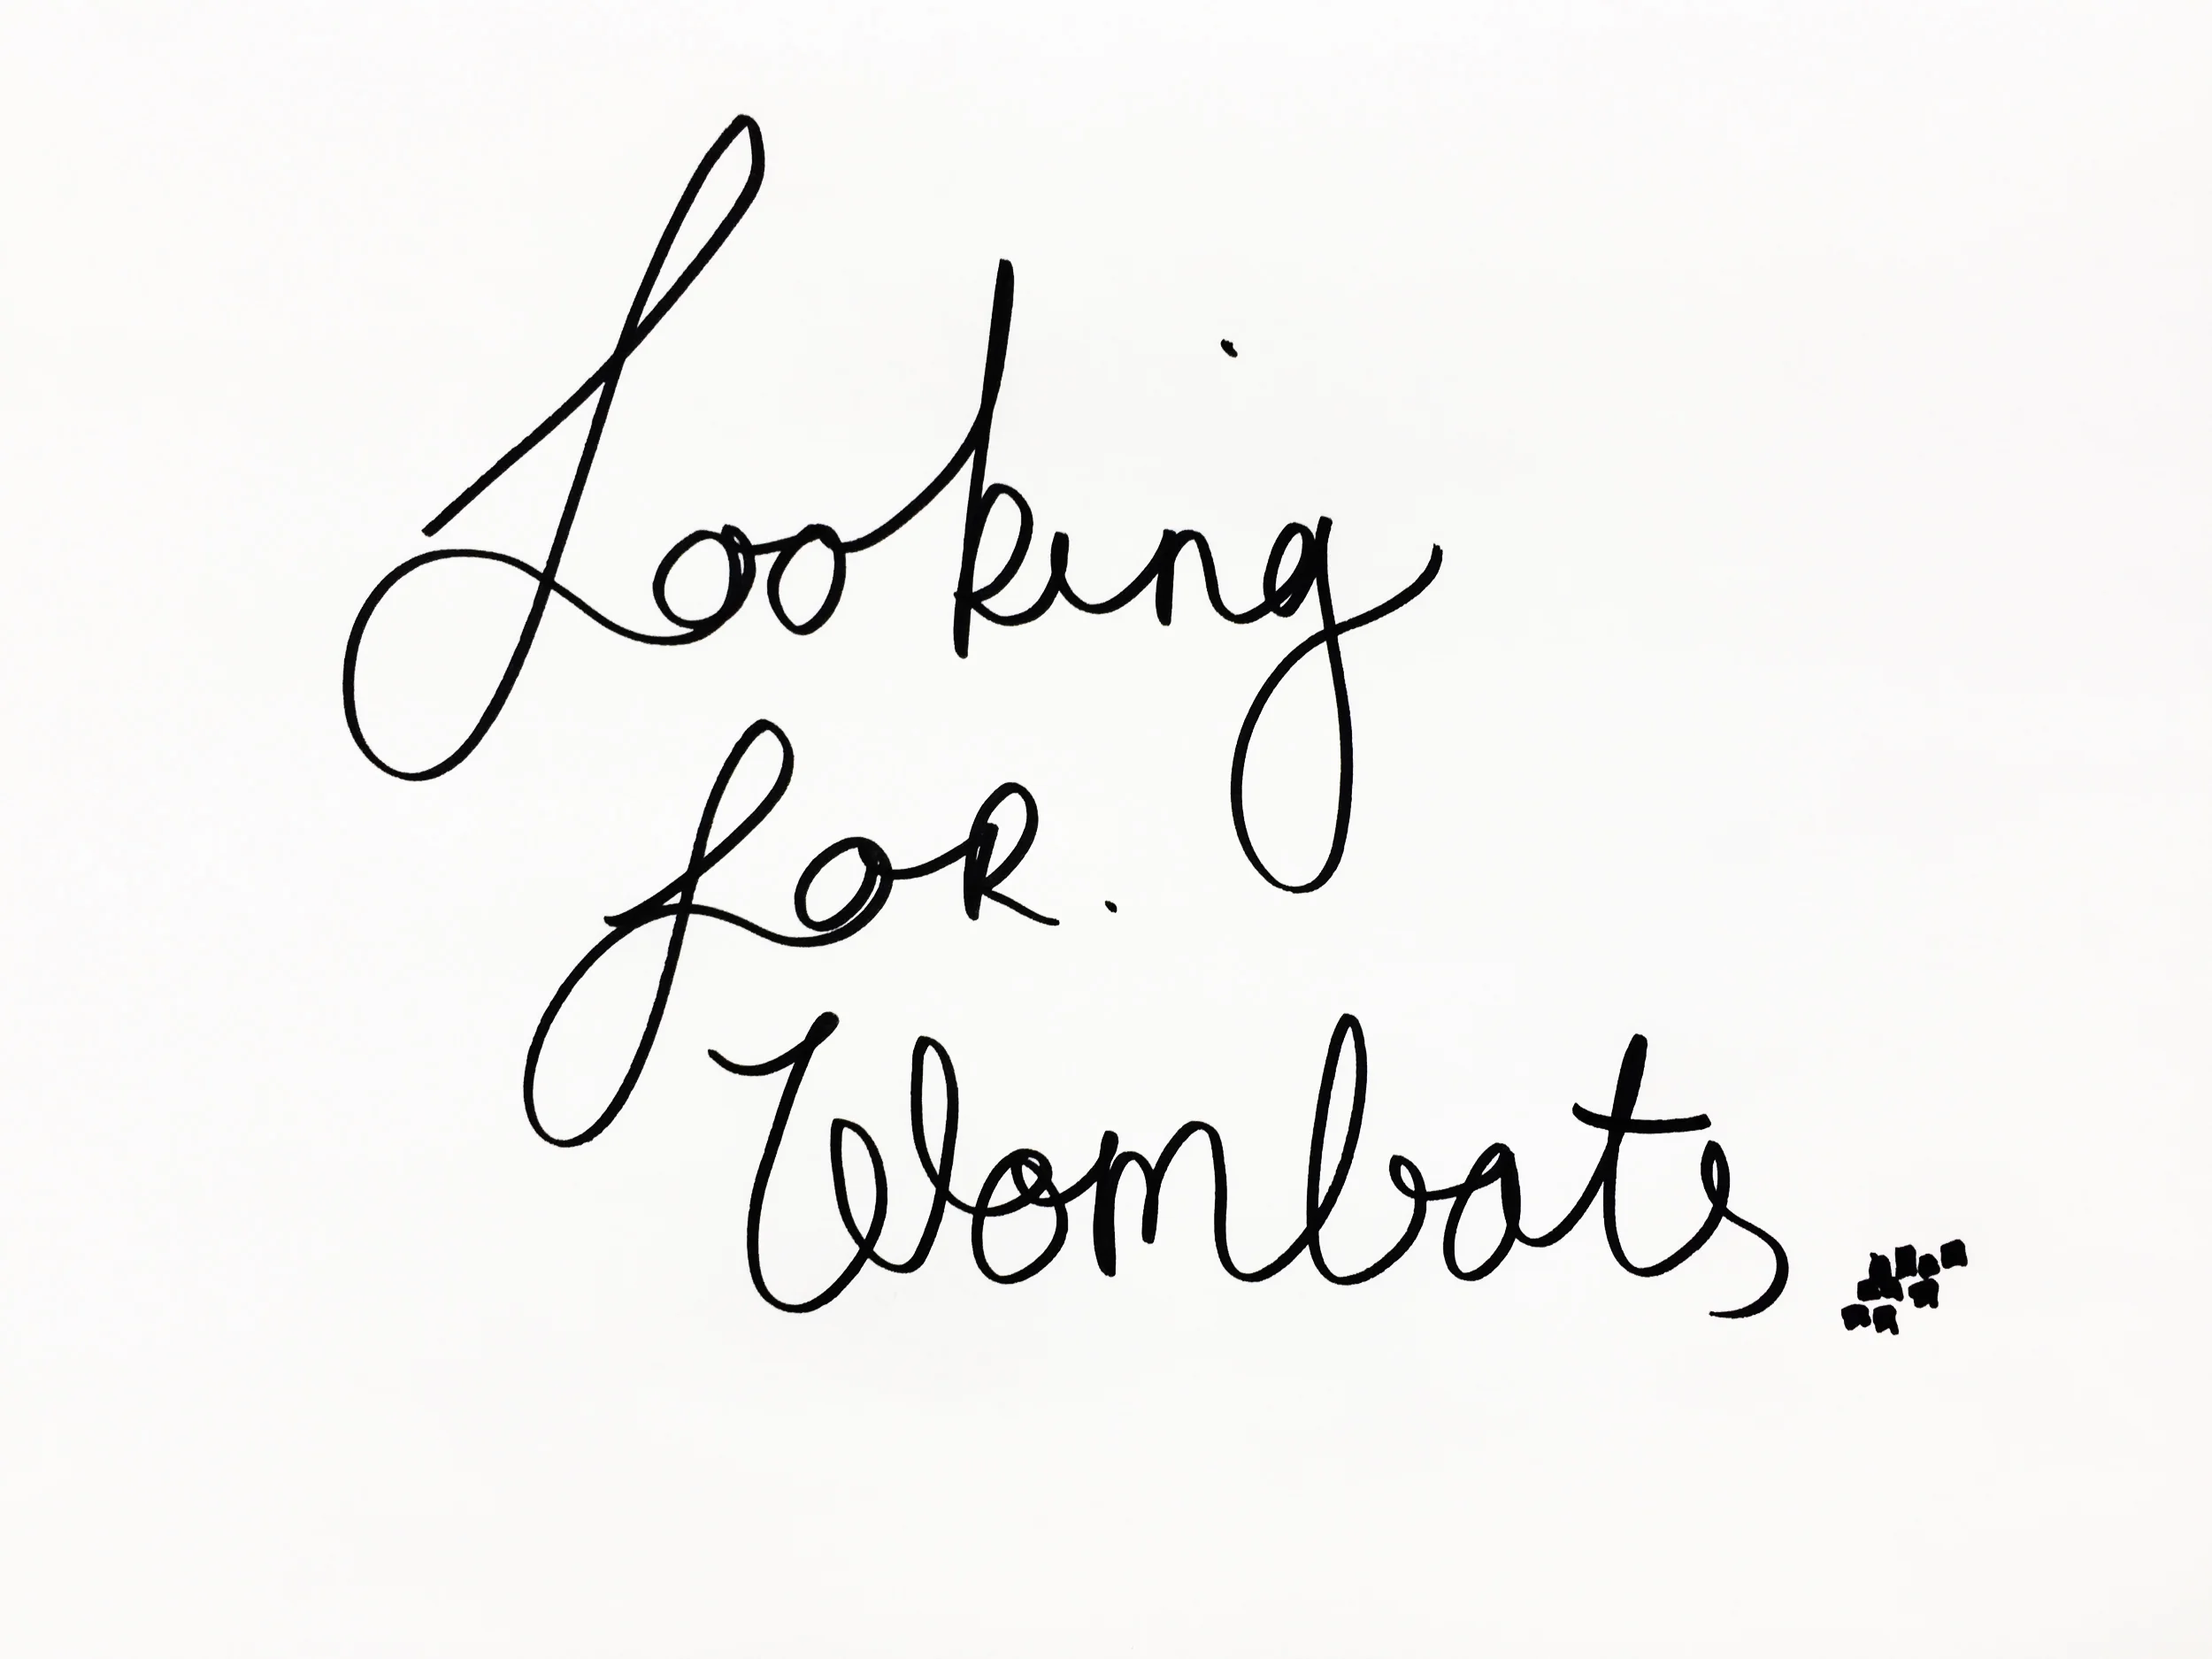 Looking
for.
Wombats